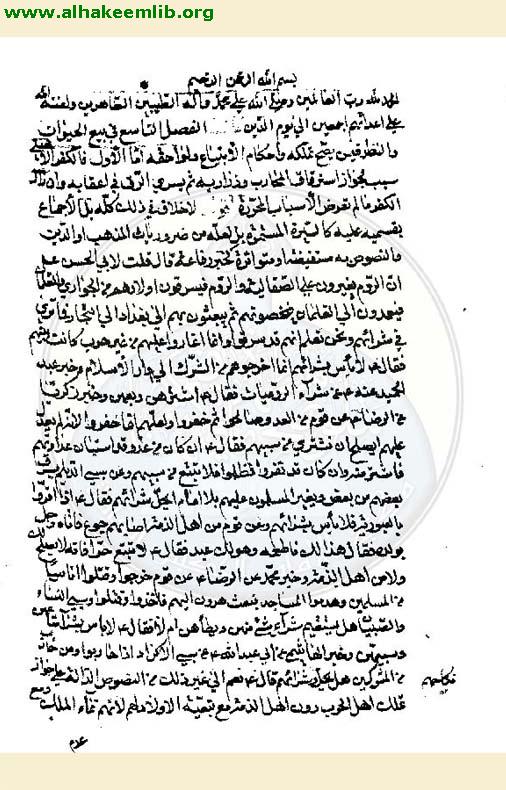 www.alhakeemlib.org
بسم الله الرحمن الرحيم
الحمد لله رب العالمين وصلى الله على محمد وآله الطيبين الطاهرين ولعنة الله
على اعدائهم اجمعين الى يوم الدين الفصل التاسع في بيع الحيوان
والنظر فيمن يصح تملكه واحكام الابتياع ولواحقه اما الاول فالكفر الاصلي
سبب لجواز استرقاق المحارب وذراريه ثم يسري الرق في اعقابه وان زال
الكفر ما لم تعرض الأسباب المحررة لاخلاف في ذلك كله بل الاجماع
بقسميه عليه كالسيرة المستمرة بل لعله من ضروريات المذهب او الدين
والنصوص به مستفيضة او متواترة كخبر رفاعة قال قلت لابي الحسن
ان الروم يغيرون على الصقالبة والروم فيسرقون اولادهم من الجواري والغلمان
فيعمدون الى الغلمان فيخصونهم ثم يبعثون بهم الى بغداد الى التجار فما ترى
في شرائهم ونحن نعلم انهم قد سرقوا وانما اغاروا عليهم من غير حرب كانت بينهم
فقال لا بأس بشرائهم انما اخرجوهم من الشرك الى دار الاسلام وخبر عبد
الحميد عنه في شراء الروميات فقال اشترهن وبعهن وخبر زكريا
عن الرضا عن قوم من العدو صالحوا ثم خفروا ولعلهم انما خفروا لانه لم يعدل
عليهم ايصلح ان نشتري من سبيهم فقال ان كان من عدو قد استبان عداوتهم
فاشتر منه وان كان قد نفروا فظلموا فلا تبتع من سبيهم وعن سبي الديلم يسرق
بعضهم من بعض ويغير المسلمون عليهم بلا امام ايحل شرائهم فقال اذا اقروا
بالعبودية فلا بأس بشرائهم وعن قوم من اهل الذمة اصابهم جوع فاتاه رجل
بولده فقال هذا لك فاطعمه وهو لك عبد فقال لا تبتع حرا فانه لا يصلح لك
ولا من اهل الذمة وخبر محمد عن الرضا عن قوم خرجوا وقتلوا اناسا
من المسلمين وهدموا المساجد فبعث هرون اليهم فأخذوا وقتلوا وسبي النساء
والصبيان هل يستقيم شراء شيء منهن ويطأهن ام لا فقال لا بأس بشراء متاعهن
وسبيهن وخبر ابي عبد الله عن سبي الاكراد اذا حاربوا ومن حارب
من المشركين هل يحل شرائهم قال نعم الى غير ذلك من النصوص الدالة على جواز
نكاحهم
تملك اهل الحرب دون اهل الذمة مع تبعية الاولاد لهم لانهم نماء الملك ومع
عدم